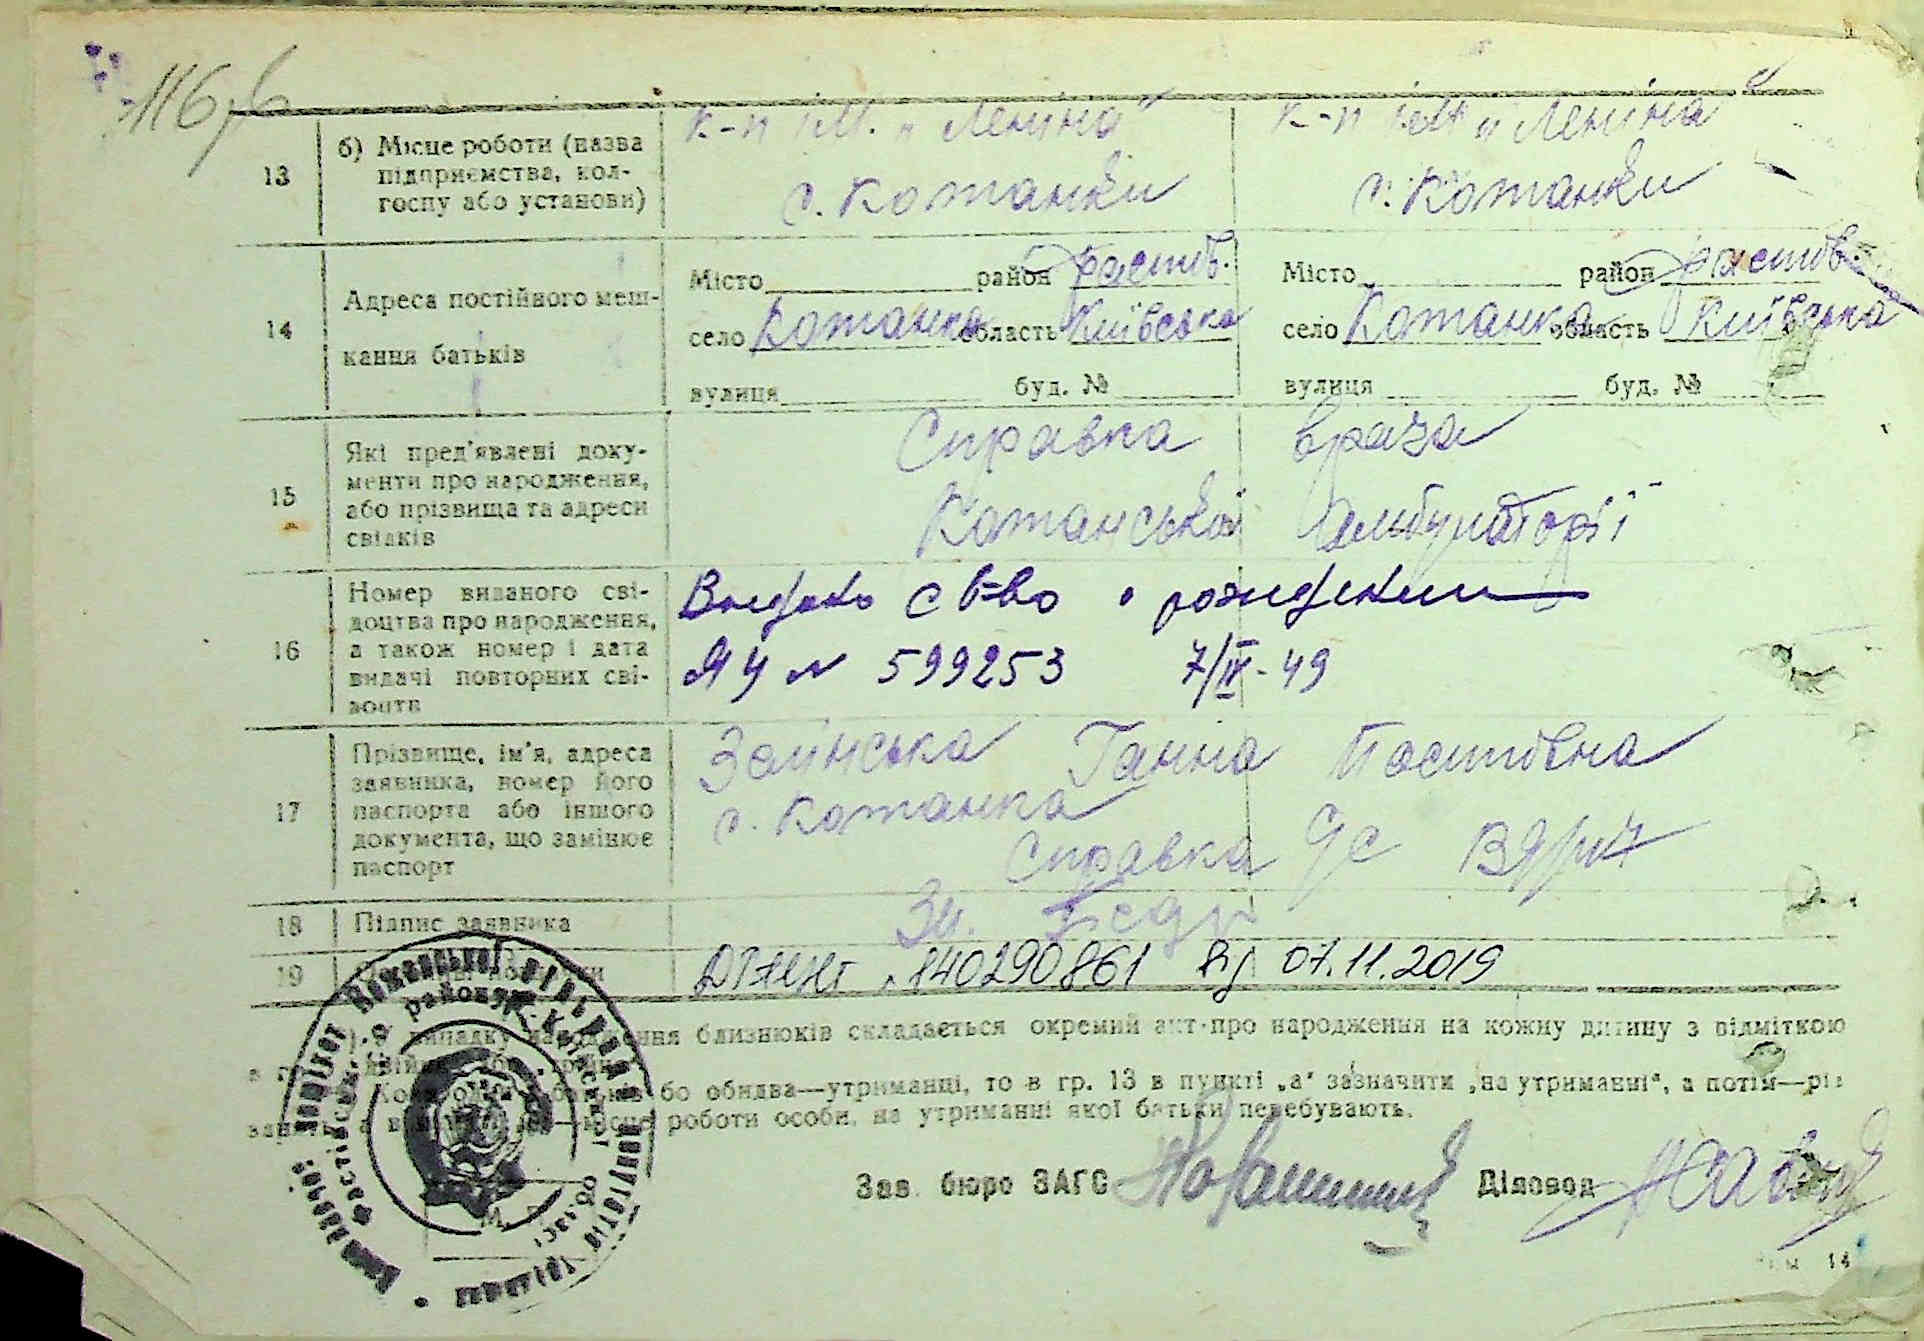 116
13 б) Місце роботи (назва підприємства, колгоспу або установи)
к-п ім. „Леніна" к-п ім „Леніна"
с. Кожанки с. Кожанки
14 Адреса постійного мешкання батьків
Місто район Фастів. Місто район Фастів.
село Кожанка область Київська село Кожанка область Київська
вулиця буд. № вулиця буд. №
15 Які пред'явлені документи про народження, або прізвища та адреси свідків
Справка врача
Кожанської амбулаторії
16 Номер виданого свідоцтва про народження, а також номер і дата видачі повторних свідоцтв
Выдано св-во о рождении
ЯЧ № 599253 7/IV-49
17 Прізвище, ім'я, адреса заявника, номер його паспорта або іншого документа, що замінює паспорт
Ганна
с. Кожанка
Справка
18 Підпис заявника
19
140290861 від 07.11.2019
випадку народження близнюків складається окремий акт про народження на кожну дитину з відміткою
або обидва—утриманці, то в гр. 13 в пункті „а" зазначити „на утриманні", а потім—
місце роботи особи, на утриманні якої батьки перебувають.
Зав. бюро ЗАГС Діловод
М.